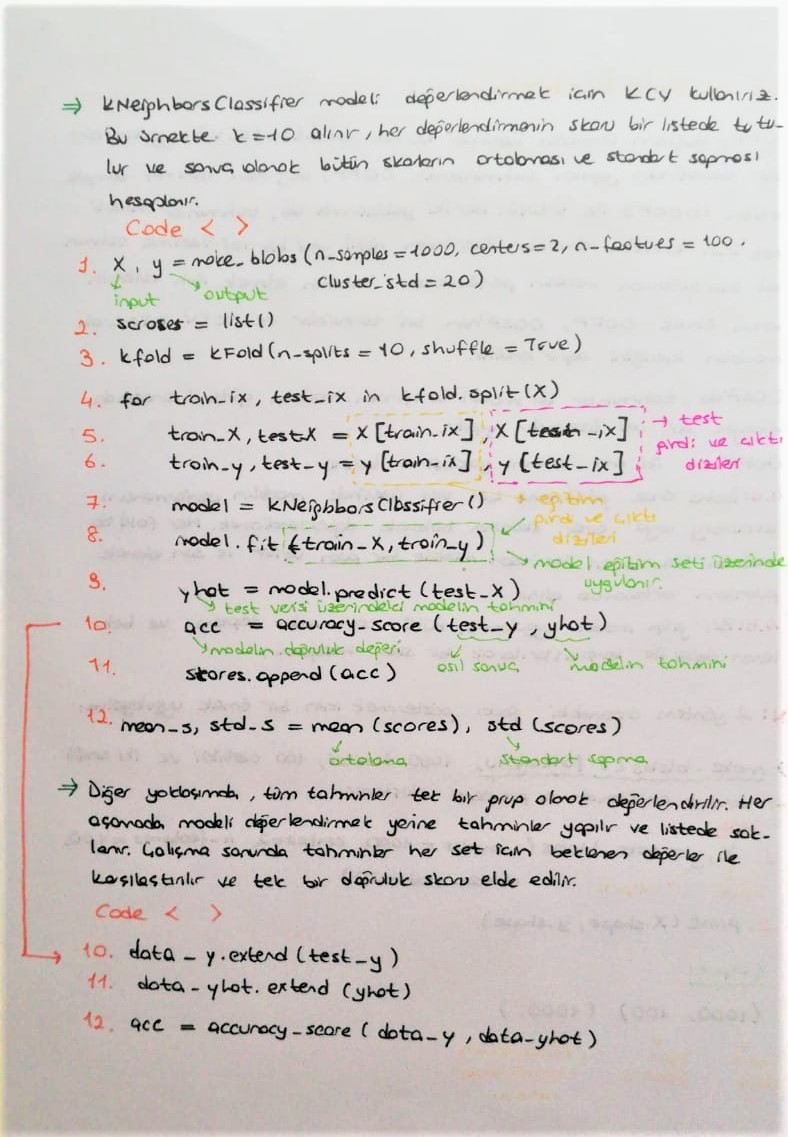 ⇒ KNeighborsClassifier modeli değerlendirmek için KCV kullanırız.
Bu örnekte k=10 alınır, her değerlendirmenin skoru bir listede tutu-
lur ve sonuç olarak bütün skorların ortalaması ve standart sapması
hesaplanır.
Code < >
1. X, y = make_blobs (n_samples = 1000, centers = 2, n_features = 100.
cluster_std = 20)
input output
2. scroses = list()
3. kfold = KFold (n-splits = 10, shuffle = True)
4. for train_ix, test_ix in kfold.split (X)
5. train_X, test_X = X [train_ix], X [test_ix] → test
6. train_y, test_y = y [train_ix], y [test_ix] girdi ve çıktı
dizileri
7. model = KNeighborsClassifier () → eğitim
girdi ve çıktı
8. model.fit (train_X, train_y) dizileri
model eğitim seti üzerinde
uygulanır.
9. yhat = model.predict (test_X)
test verisi üzerindeki modelin tahmini
10. acc = accuracy_score (test_y, yhat)
modelin doğruluk değeri asıl sonuç modelin tahmini
11. scores.append (acc)
12. mean_s, std_s = mean (scores), std (scores)
ortalama standart sapma
⇒ Diğer yaklaşımda, tüm tahminler tek bir grup olarak değerlendirilir. Her
aşamada modeli değerlendirmek yerine tahminler yapılır ve listede sak-
lanır. Çalışma sonunda tahminler her set için beklenen değerler ile
karşılaştırılır ve tek bir doğruluk skoru elde edilir.
Code < >
10. data_y.extend (test_y)
11. data_yhat.extend (yhat)
12. acc = accuracy_score (data_y, data_yhat)